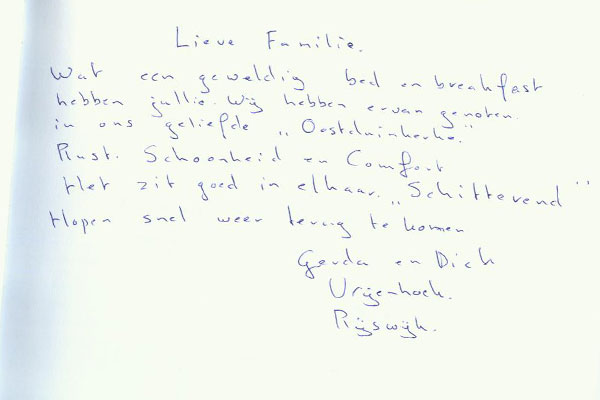 Lieve Familie.
Wat een geweldig bed en breakfast
hebben jullie. Wij hebben ervan genoten.
in ons geliefde „Oostduinkerke."
Rust. Schoonheid en Comfort
Het zit goed in elkaar. „Schitterend"
Hopen snel weer terug te komen
Gerda en Dick
Vrijenhoek.
Rijswijk.